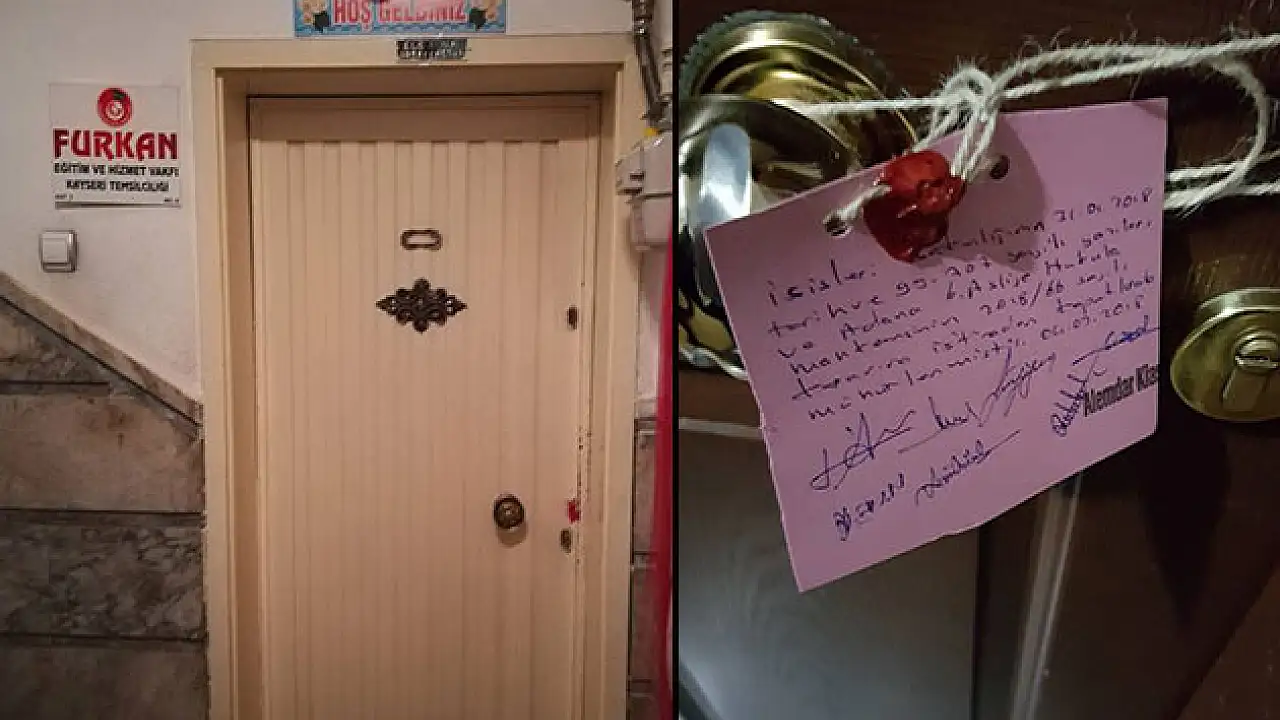 HOŞ GELDİNİZ
FURKAN
EĞİTİM VE HİZMET VAKFI
KAYSERİ TEMSİLCİLİĞİ
içişleri 31.01.2018
tarih ve 207 sayılı yazıları
ve Adana 6. Asliye Hukuk
mahkemesinin 2018/66 sayılı
kararına istinaden kapatılarak
mühürlenmiştir. 2018
Alemdar